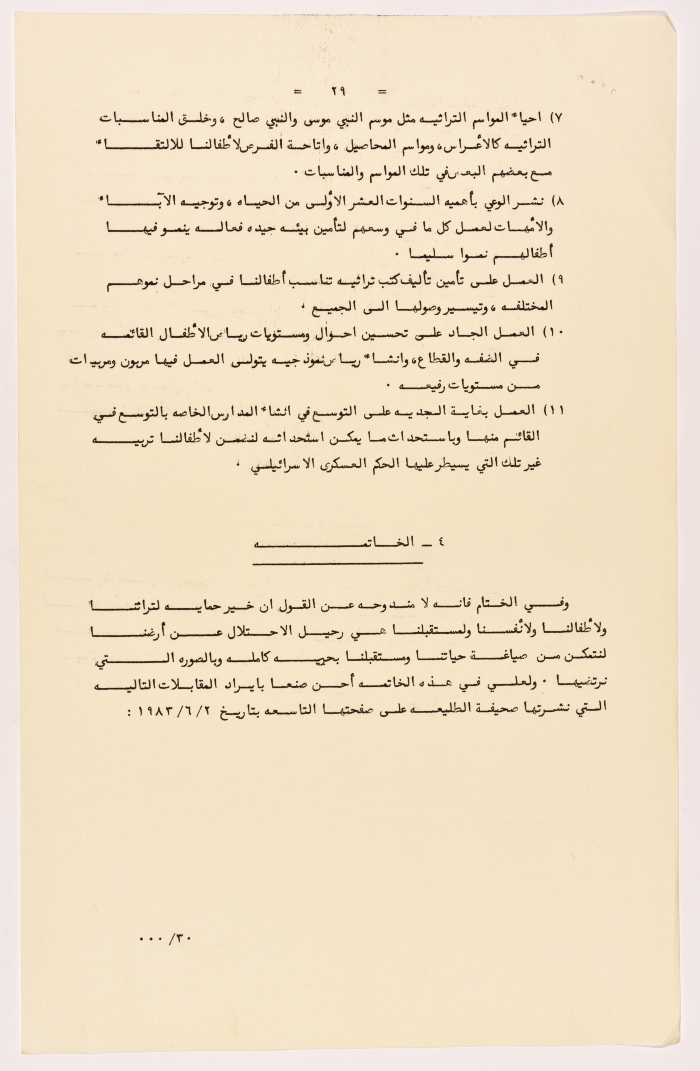 = ٢٩ =
٧) احياء المواسم التراثيه مثل موسم النبي موسى والنبي صالح ، وخلق المناسبات
التراثيه كالأعراس، ومواسم المحاصيل ، واتاحة الفرص لأطفالنا للالتقاء
مع بعضهم البعض في تلك المواسم والمناسبات .
٨) نشر الوعي بأهميه السنوات العشر الأولى من الحياه ، وتوجيه الآباء
والأمهات لعمل كل ما في وسعهم لتأمين بيئه جيده فعاله ينمو فيها
أطفالهم نموا سليما .
٩) العمل على تأمين تأليف كتب تراثيه تناسب أطفالنا في مراحل نموهم
المختلفه ، وتيسير وصولها الى الجميع .
١٠) العمل الجاد على تحسين احوال ومستويات رياض الأطفال القائمه
في الضفه والقطاع، وانشاء رياض نموذجيه يتولى العمل فيها مربون ومربيات
من مستويات رفيعه .
١١) العمل بغاية الجديه على التوسع في انشاء المدارس الخاصه بالتوسع في
القائم منها وباستحداث ما يمكن استحداثه لنضمن لأطفالنا تربيه
غير تلك التي يسيطر عليها الحكم العسكرى الاسرائيلي .
٤ _ الخاتمه
وفي الختام فانه لا مندوحه عن القول ان خير حمايه لتراثنا
ولأطفالنا ولأنفسنا ولمستقبلنا هي رحيل الاحتلال عن أرضنا
لنتمكن من صياغة حياتنا ومستقبلنا بحريه كامله وبالصوره التي
نرتضيها . ولعلي في هذه الخاتمه أحسن صنعا بايراد المقابلات التاليه
التي نشرتها صحيفة الطليعه على صفحتها التاسعه بتاريخ ١٩٨٣/٦/٢ :
٣٠/ ...